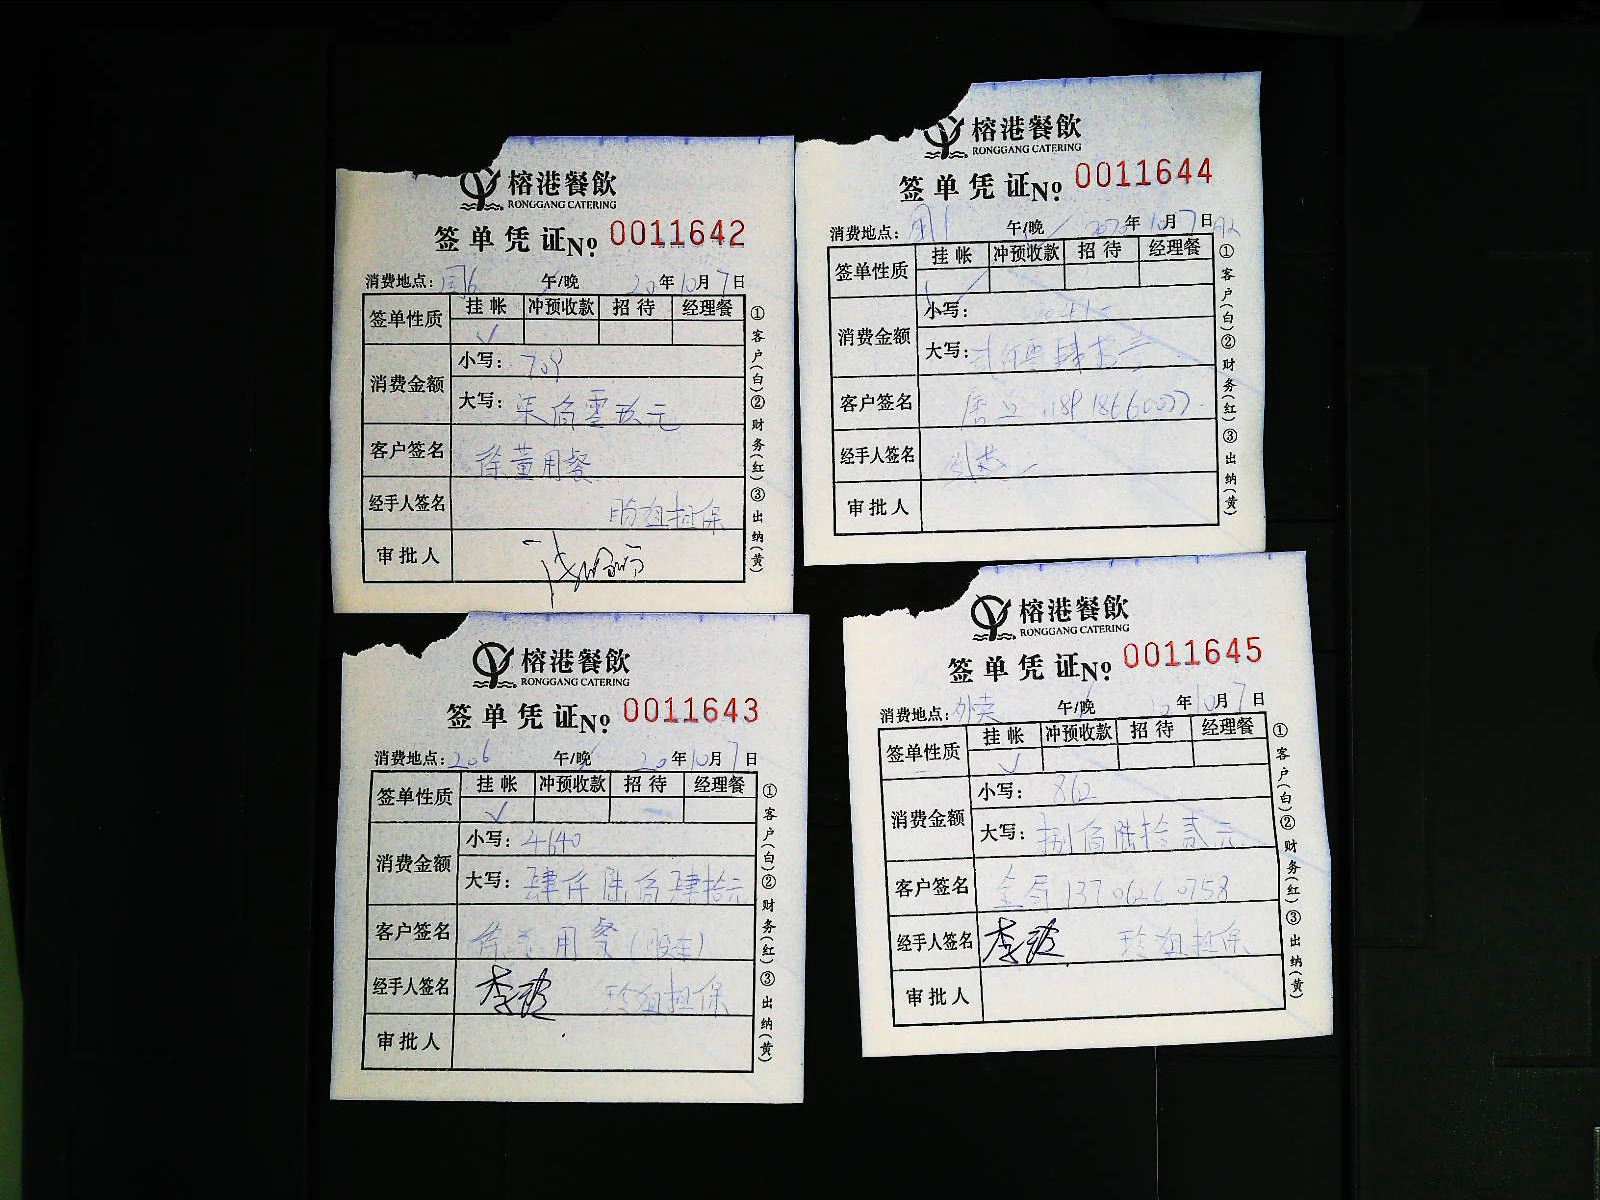 榕港餐飲
RONGGANG CATERING
签单凭证 No 0011642
消费地点: 午/晚 20年10月7日
签单性质 挂帐 冲预收款 招待 经理餐
✓
消费金额 小写: 709
大写: 柒佰零玖元
客户签名 徐董用餐
经手人签名 担保
审批人
①客户(白)②财务(红)③出纳(黄)
榕港餐飲
RONGGANG CATERING
签单凭证 No 0011644
消费地点: 午/晚 年10月7日
签单性质 挂帐 冲预收款 招待 经理餐
✓
消费金额 小写:
大写:
客户签名
经手人签名
审批人
①客户(白)②财务(红)③出纳(黄)
榕港餐飲
RONGGANG CATERING
签单凭证 No 0011643
消费地点: 206 午/晚 20年10月7日
签单性质 挂帐 冲预收款 招待 经理餐
✓
消费金额 小写: 4640
大写: 肆仟陆佰肆拾元
客户签名 用餐
经手人签名 李波 玲姐担保
审批人
①客户(白)②财务(红)③出纳(黄)
榕港餐飲
RONGGANG CATERING
签单凭证 No 0011645
消费地点: 外卖 午/晚 年10月7日
签单性质 挂帐 冲预收款 招待 经理餐
✓
消费金额 小写: 862
大写: 捌佰陆拾贰元
客户签名
经手人签名 李波 玲姐担保
审批人
①客户(白)②财务(红)③出纳(黄)